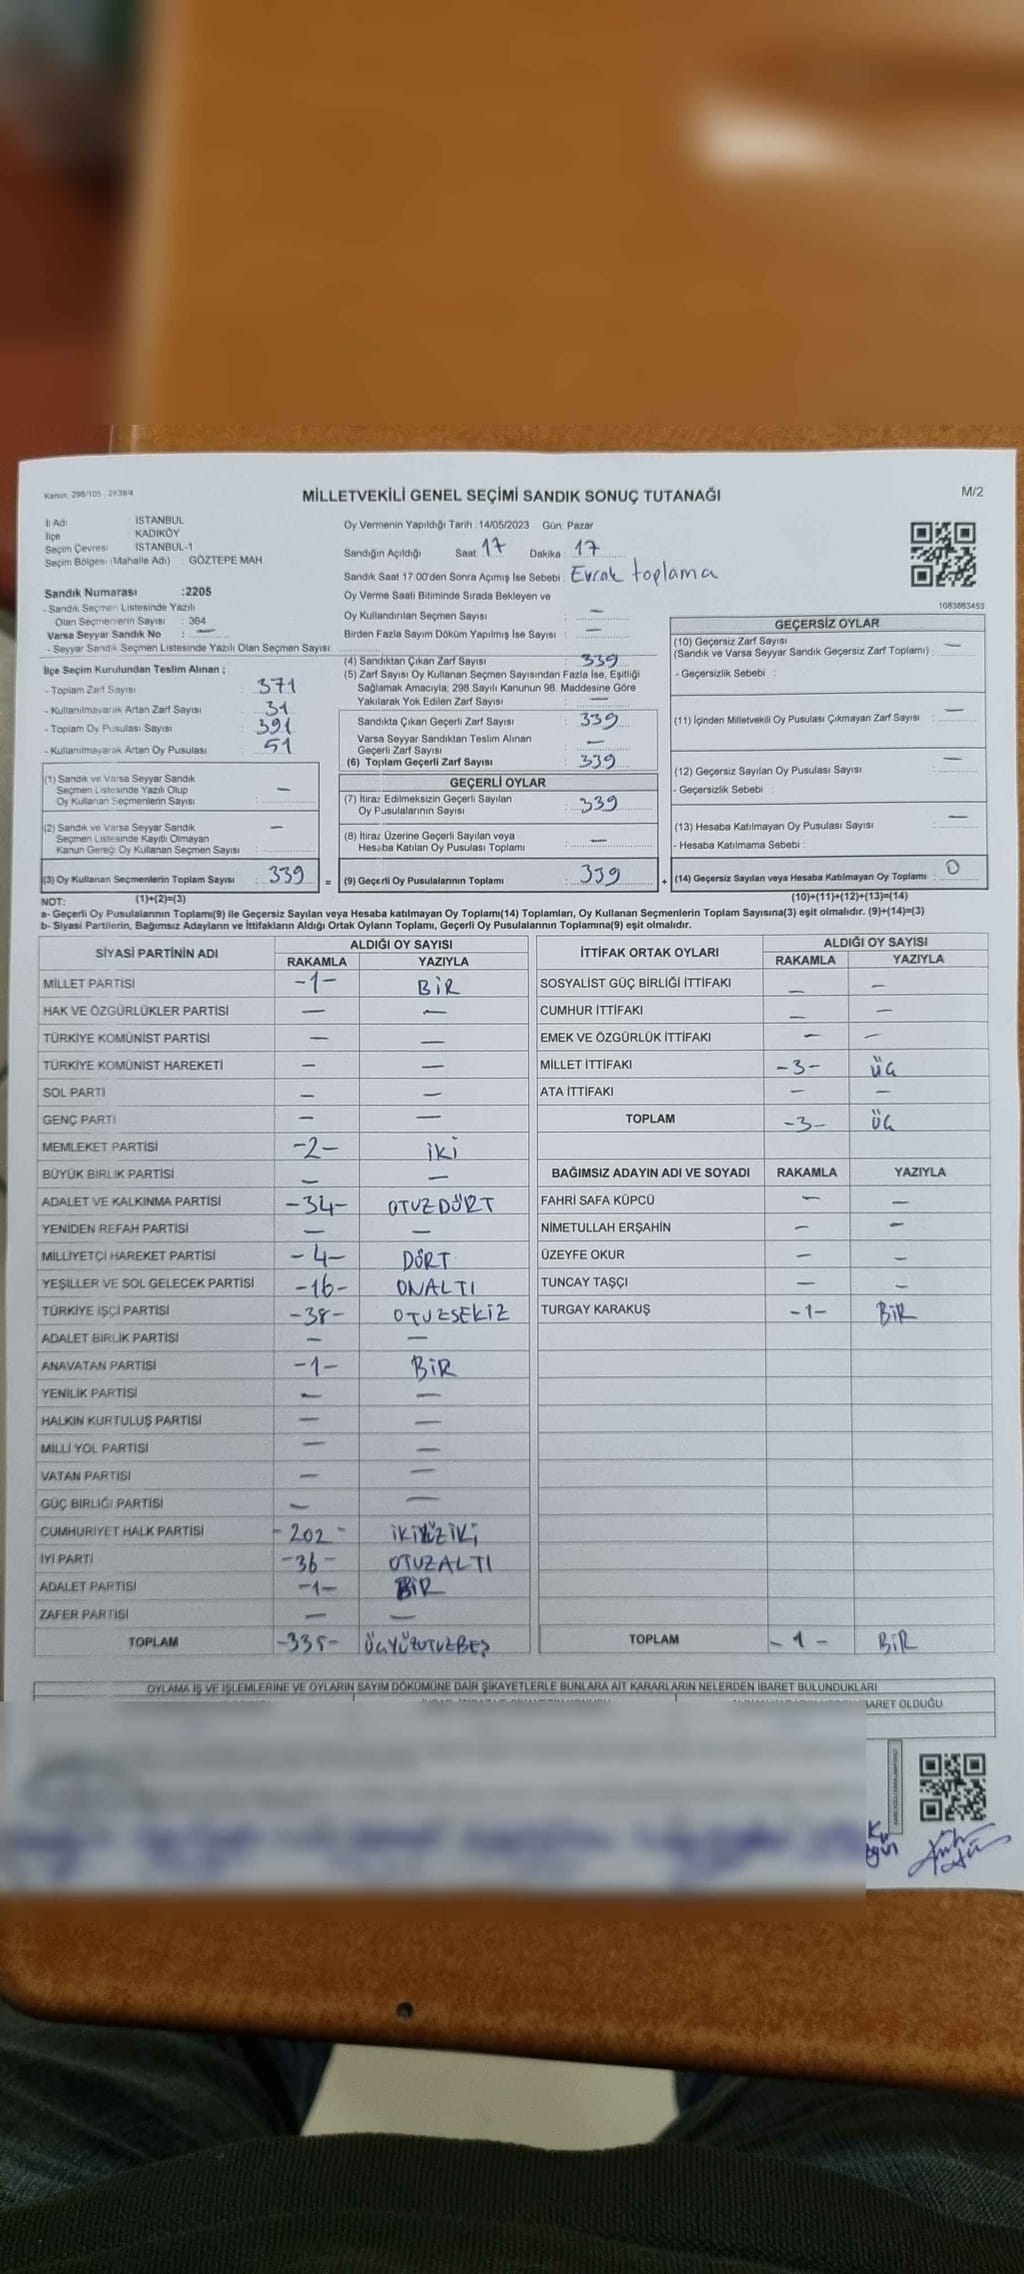 Kanun: 298/105, 2839/4
MİLLETVEKİLİ GENEL SEÇİMİ SANDIK SONUÇ TUTANAĞI
M/2
İl Adı : İSTANBUL
İlçe : KADIKÖY
Seçim Çevresi : İSTANBUL-1
Seçim Bölgesi (Mahalle Adı) : GÖZTEPE MAH
Sandık Numarası :2205
- Sandık Seçmen Listesinde Yazılı
Olan Seçmenlerin Sayısı : 364
Varsa Seyyar Sandık No : —
- Seyyar Sandık Seçmen Listesinde Yazılı Olan Seçmen Sayısı:
İlçe Seçim Kurulundan Teslim Alınan ;
- Toplam Zarf Sayısı : 371
- Kullanılmayarak Artan Zarf Sayısı : 31
- Toplam Oy Pusulası Sayısı : 391
- Kullanılmayarak Artan Oy Pusulası : 51
(1) Sandık ve Varsa Seyyar Sandık
Seçmen Listesinde Yazılı Olup
Oy Kullanan Seçmenlerin Sayısı : —
(2) Sandık ve Varsa Seyyar Sandık
Seçmen Listesinde Kayıtlı Olmayan
Kanun Gereği Oy Kullanan Seçmen Sayısı : —
(3) Oy Kullanan Seçmenlerin Toplam Sayısı : 339
(1)+(2)=(3)
Oy Vermenin Yapıldığı Tarih : 14/05/2023 Gün: Pazar
Sandığın Açıldığı Saat : 17 Dakika : 17
Sandık Saat 17:00'den Sonra Açımış İse Sebebi : Evrak toplama
Oy Verme Saati Bitiminde Sırada Bekleyen ve
Oy Kullandırılan Seçmen Sayısı : —
Birden Fazla Sayım Döküm Yapılmış İse Sayısı : —
(4) Sandıktan Çıkan Zarf Sayısı : 339
(5) Zarf Sayısı Oy Kullanan Seçmen Sayısından Fazla İse, Eşitliği
Sağlamak Amacıyla; 298 Sayılı Kanunun 98. Maddesine Göre
Yakılarak Yok Edilen Zarf Sayısı : —
Sandıkta Çıkan Geçerli Zarf Sayısı : 339
Varsa Seyyar Sandıktan Teslim Alınan
Geçerli Zarf Sayısı : —
(6) Toplam Geçerli Zarf Sayısı : 339
GEÇERLİ OYLAR
(7) İtiraz Edilmeksizin Geçerli Sayılan
Oy Pusulalarının Sayısı : 339
(8) İtiraz Üzerine Geçerli Sayılan veya
Hesaba Katılan Oy Pusulası Toplamı : —
= (9) Geçerli Oy Pusulalarının Toplamı : 339
1083863453
GEÇERSİZ OYLAR
(10) Geçersiz Zarf Sayısı
(Sandık ve Varsa Seyyar Sandık Geçersiz Zarf Toplamı) : —
- Geçersizlik Sebebi :
(11) İçinden Milletvekili Oy Pusulası Çıkmayan Zarf Sayısı : —
(12) Geçersiz Sayılan Oy Pusulası Sayısı : —
- Geçersizlik Sebebi :
(13) Hesaba Katılmayan Oy Pusulası Sayısı : —
- Hesaba Katılmama Sebebi :
+ (14) Geçersiz Sayılan veya Hesaba Katılmayan Oy Toplamı : 0
(10)+(11)+(12)+(13)=(14)
NOT:
a- Geçerli Oy Pusulalarının Toplamı(9) ile Geçersiz Sayılan veya Hesaba katılmayan Oy Toplamı(14) Toplamları, Oy Kullanan Seçmenlerin Toplam Sayısına(3) eşit olmalıdır. (9)+(14)=(3)
b- Siyasi Partilerin, Bağımsız Adayların ve İttifakların Aldığı Ortak Oyların Toplamı, Geçerli Oy Pusulalarının Toplamına(9) eşit olmalıdır.
SİYASİ PARTİNİN ADI ALDIĞI OY SAYISI
RAKAMLA YAZIYLA
MİLLET PARTİSİ -1- BİR
HAK VE ÖZGÜRLÜKLER PARTİSİ — —
TÜRKİYE KOMÜNİST PARTİSİ — —
TÜRKİYE KOMÜNİST HAREKETİ — —
SOL PARTİ — —
GENÇ PARTİ — —
MEMLEKET PARTİSİ -2- İKİ
BÜYÜK BİRLİK PARTİSİ — —
ADALET VE KALKINMA PARTİSİ -34- OTUZDÖRT
YENİDEN REFAH PARTİSİ — —
MİLLİYETÇİ HAREKET PARTİSİ -4- DÖRT
YEŞİLLER VE SOL GELECEK PARTİSİ -16- ONALTI
TÜRKİYE İŞÇİ PARTİSİ -38- OTUZSEKİZ
ADALET BİRLİK PARTİSİ — —
ANAVATAN PARTİSİ -1- BİR
YENİLİK PARTİSİ — —
HALKIN KURTULUŞ PARTİSİ — —
MİLLİ YOL PARTİSİ — —
VATAN PARTİSİ — —
GÜÇ BİRLİĞİ PARTİSİ — —
CUMHURİYET HALK PARTİSİ -202- İKİYÜZİKİ
İYİ PARTİ -36- OTUZALTI
ADALET PARTİSİ -1- BİR
ZAFER PARTİSİ — —
TOPLAM -335- ÜÇYÜZOTUZBEŞ
İTTİFAK ORTAK OYLARI ALDIĞI OY SAYISI
RAKAMLA YAZIYLA
SOSYALİST GÜÇ BİRLİĞİ İTTİFAKI — —
CUMHUR İTTİFAKI — —
EMEK VE ÖZGÜRLÜK İTTİFAKI — —
MİLLET İTTİFAKI -3- ÜÇ
ATA İTTİFAKI — —
TOPLAM -3- ÜÇ
BAĞIMSIZ ADAYIN ADI VE SOYADI RAKAMLA YAZIYLA
FAHRİ SAFA KÜPCÜ — —
NİMETULLAH ERŞAHİN — —
ÜZEYFE OKUR — —
TUNCAY TAŞÇI — —
TURGAY KARAKUŞ -1- BİR
TOPLAM -1- BİR
OYLAMA İŞ VE İŞLEMLERİNE VE OYLARIN SAYIM DÖKÜMÜNE DAİR ŞİKAYETLERLE BUNLARA AİT KARARLARIN NELERDEN İBARET BULUNDUKLARI
BARET OLDUĞU